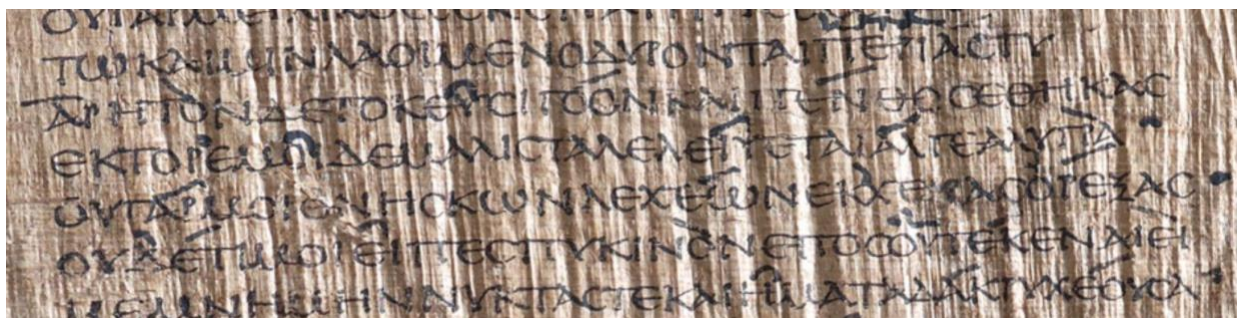 ΤΩΚΑΙΜΙΝΛΑΟΙΜΕΝΟΔΥΡΟΝΤΑΙΠΕΡΙΑϹΤΥ
ΑΡΗΤΟΝΔΕΤΟΚΕΥϹΙΓΟΟΝΚΑΙΠΕΝΘΟϹΕΘΗΚΑϹ
ΕΚΤΟΡΕΜΟΙΔΕΜΑΛΙϹΤΑΛΕΛΕΙΨΕΤΑΙΑΛΓΕΑΛΥΓΡΑ
ΟΥΓΑΡΜΟΙΘΝΗϹΚΩΝΛΕΧΕΩΝΕΚΧΕΙΡΑϹΟΡΕΞΑϹ
ΟΥΔΕΤΙΜΟΙΕΙΠΕϹΠΥΚΙΝΟΝΕΠΟϹΟΥΤΕΚΕΝΑΙΕΙ
ΜΕΜΝΗΜΗΝΝΥΚΤΑϹΤΕΚΑΙΗΜΑΤΑΔΑΚΡΥΧΕΟΥϹΑ